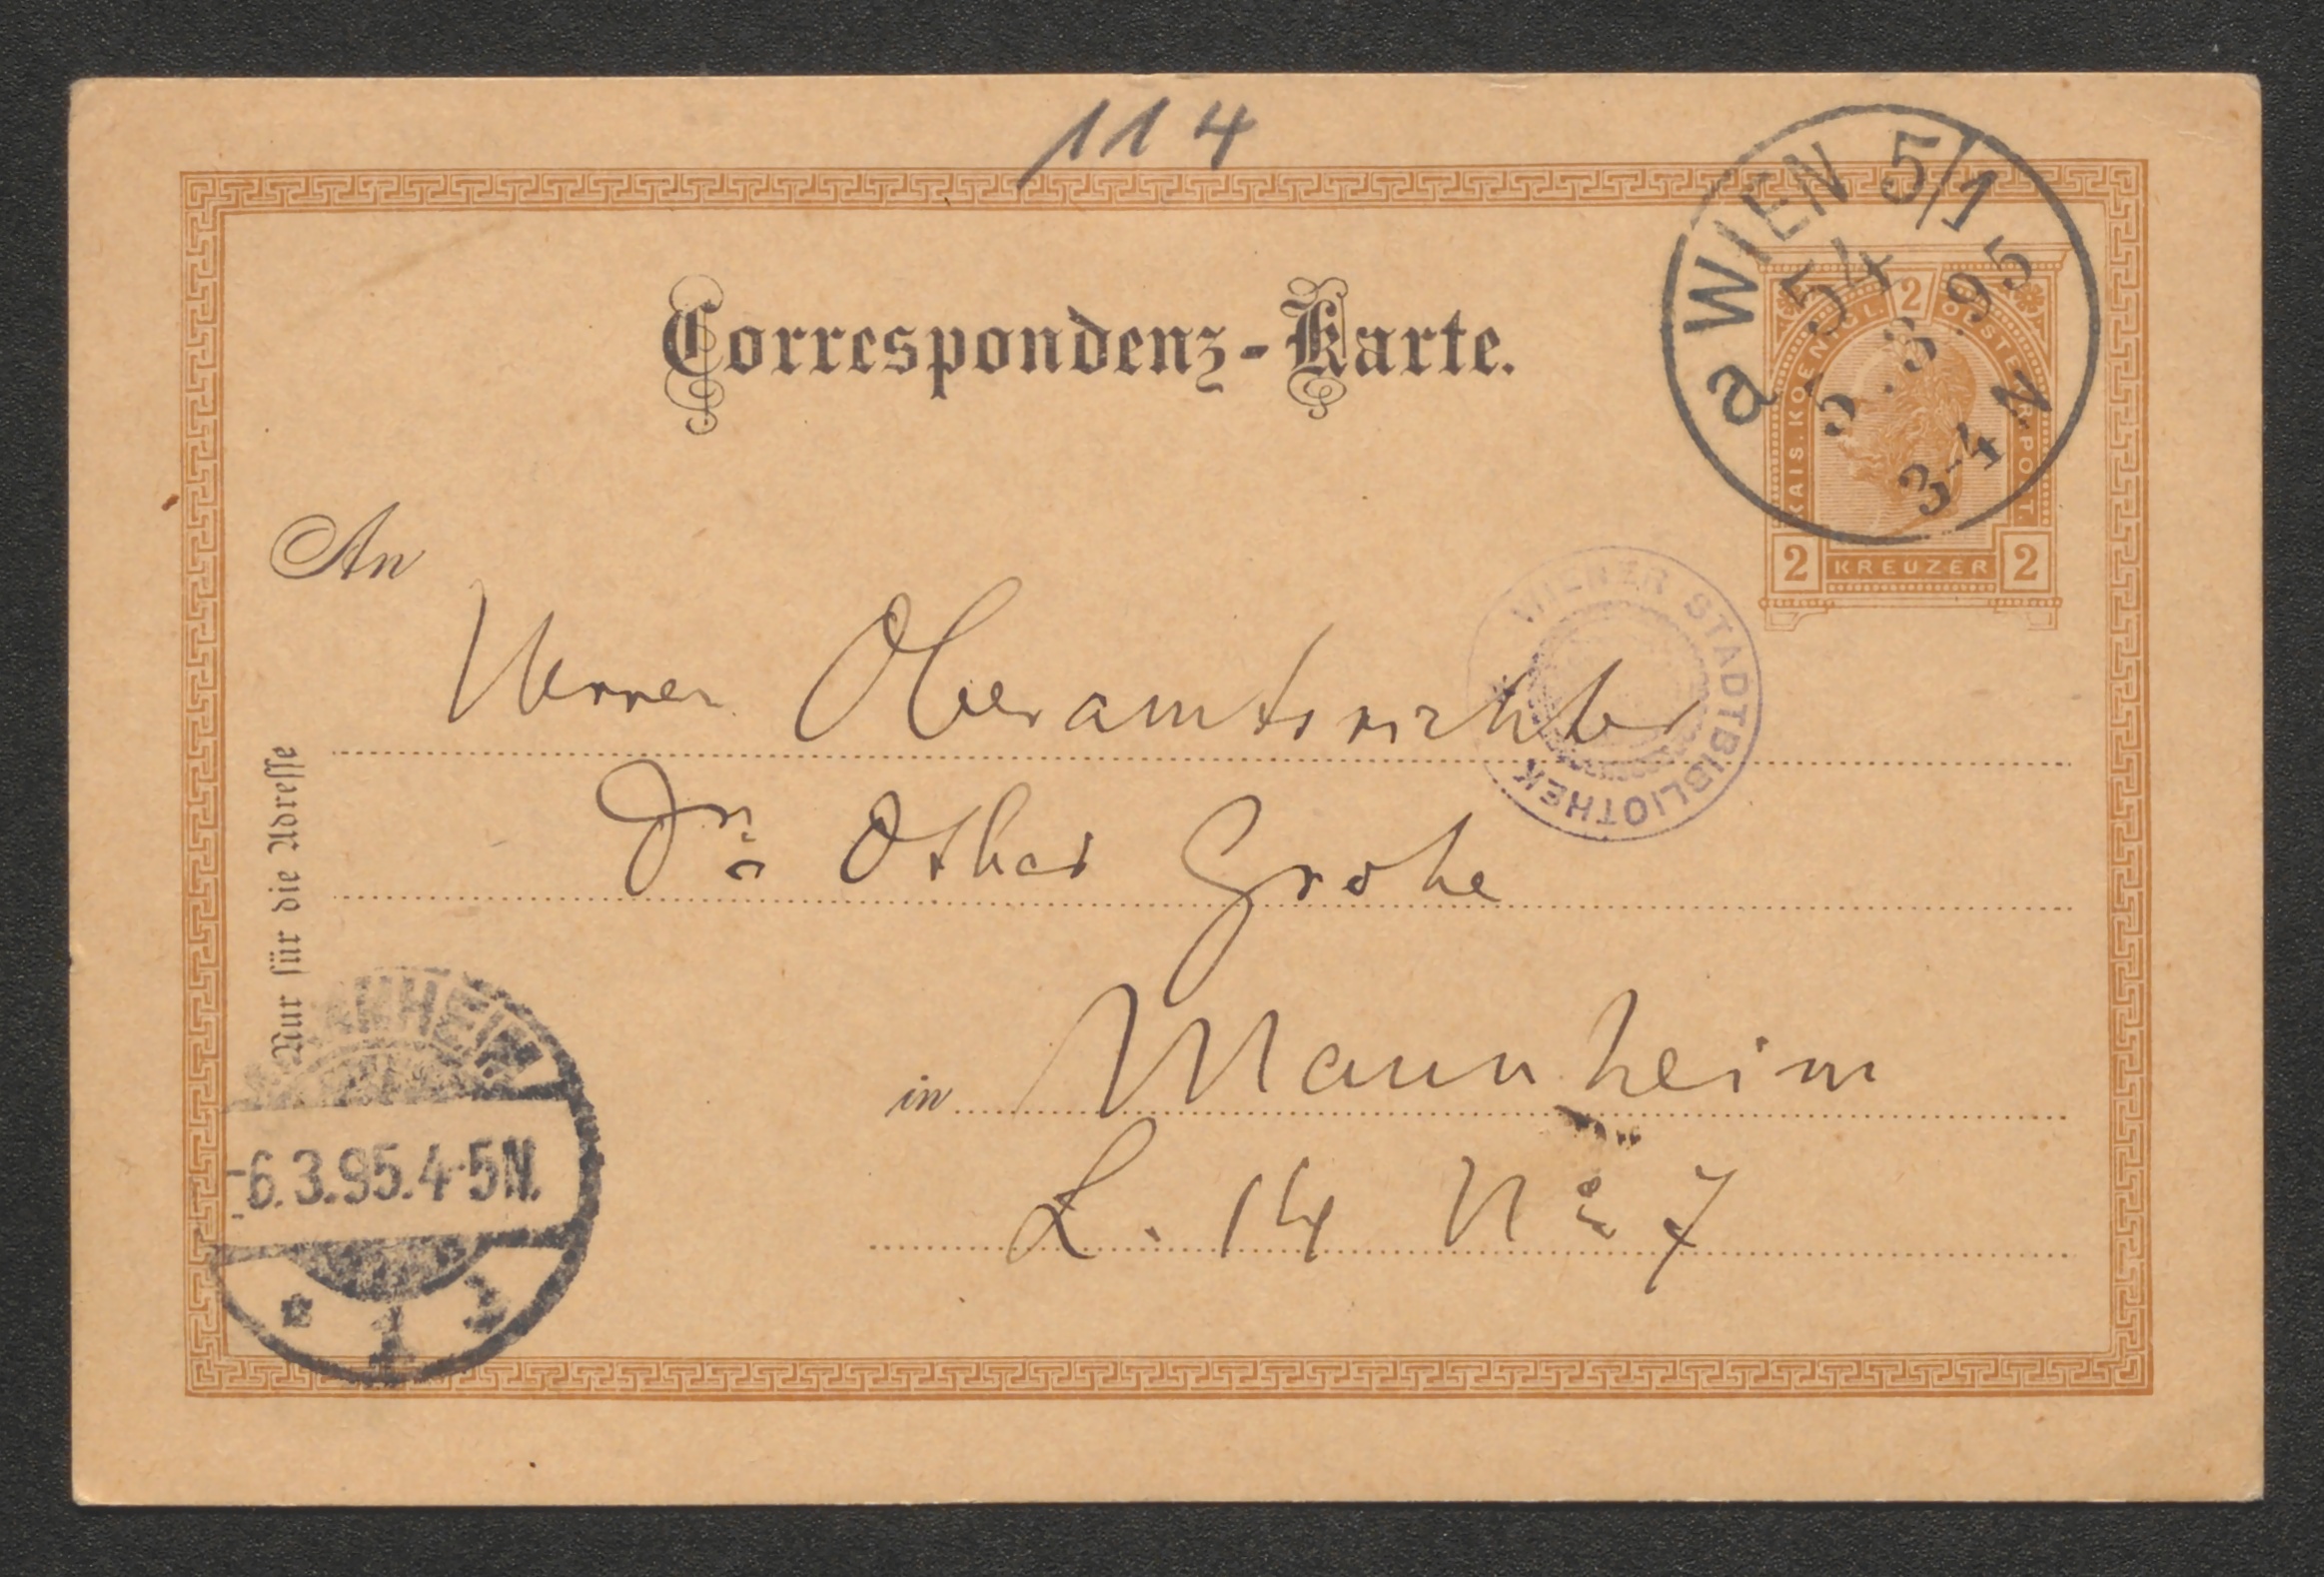 114
Correspondenz-Karte.
a WIEN 5/1
54
5.3.95
3-4 N
KAIS. KOENIGL. 2 OESTERR. POST.
2 KREUZER 2
An
Herrn Oberamtsrichter
WIENER STADTBIBLIOTHEK
Dr. Oskar Grohe
in Mannheim
L. 14 No 7
Nur für die Adresse
MANNHEIM
-6.3.95.4-5N.
* 1